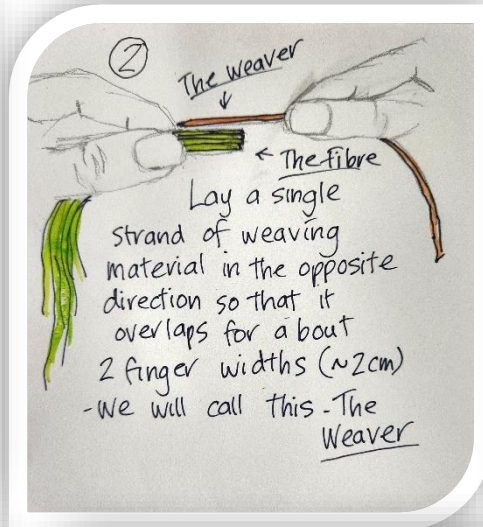 2
The weaver
The fibre
Lay a single
strand of weaving
material in the opposite
direction so that it
overlaps for about
2 finger widths (~2cm)
-We will call this - The
Weaver